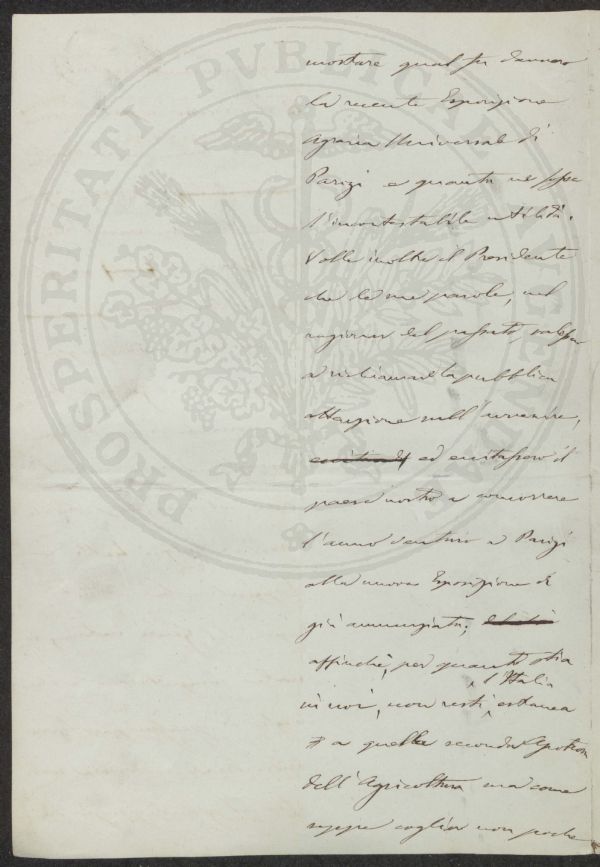 PROSPERITATI PVBLICAE AVGENDAE
mostrare qual fu davvero
la recente Esposizione
Agraria Universale di
Parigi e quanta ne fosse
l'incontestabile utilità.
Volle inoltre il Presidente
che le mie parole, nel
ragionar del passato, valessero
a richiamare la pubblica
attenzione sull'avvenire,
ed eccitassero il
paese nostro a concorrere
l'anno venturo a Parigi
alla nuova Esposizione di
già annunziata;
affinchè, per quanto stia
in noi, non resti l'Italia estranea
a quella seconda Apoteosi
dell'Agricoltura ma come
seppe coglier non poche